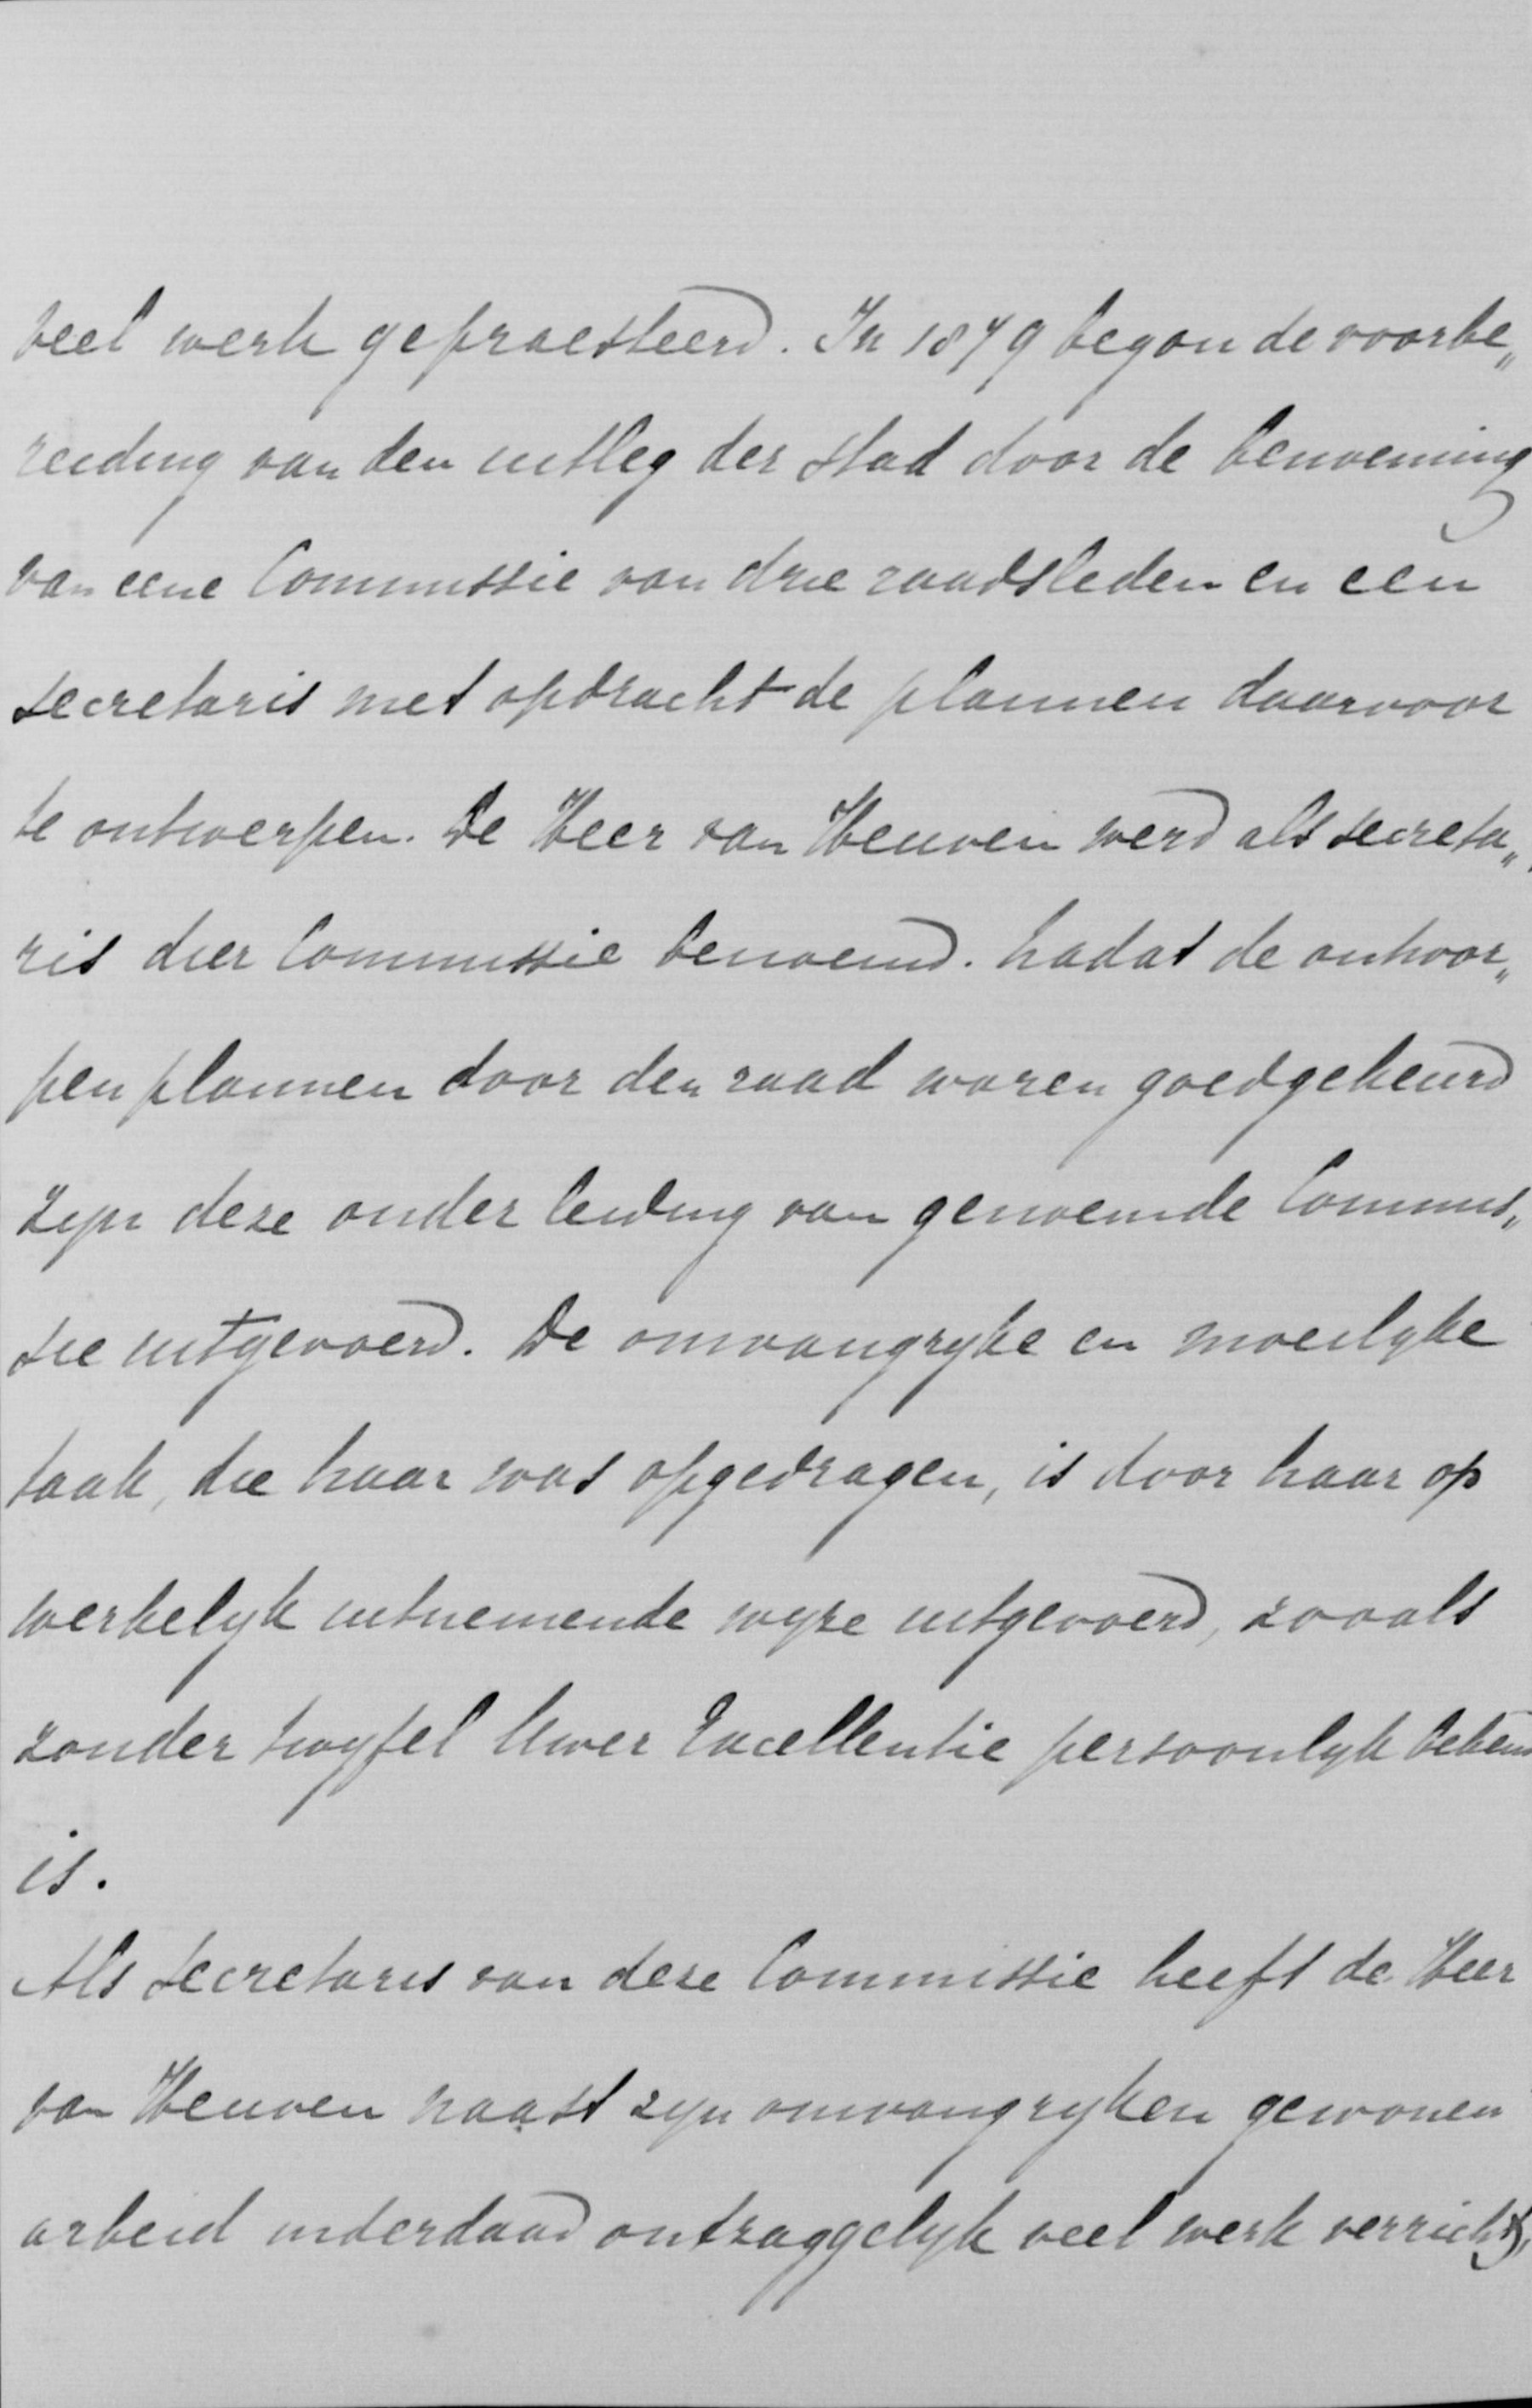 veel werk gepraesteerd. In 1879 begon de voorbe„
reiding van den uitleg der stad door de benoeming
van eene Commissie van drie raadsleden en een
secretaris met opdracht de plannen daarvoor
te ontwerpen. De Heer van Heuven werd als secreta„
ris dier Commissie benoemd. Nadat de ontwor„
pen plannen door den raad waren goedgekeurd
zyn deze onder leiding van genoemde Commis„
sie uitgevoerd. De omvangryke en moeilyke
taak, die haar was opgedragen, is door haar op
werkelyk uitnemende wyze uitgevoerd, zooals
zonder twyfel Uwer Excellentie persoonlyk beken
is.
Als secretaris van deze Commissie heeft de Heer
van Heuven naast zyn omvangryken gewonen
arbeid inderdaad ontzaggelyk veel werk verricht,